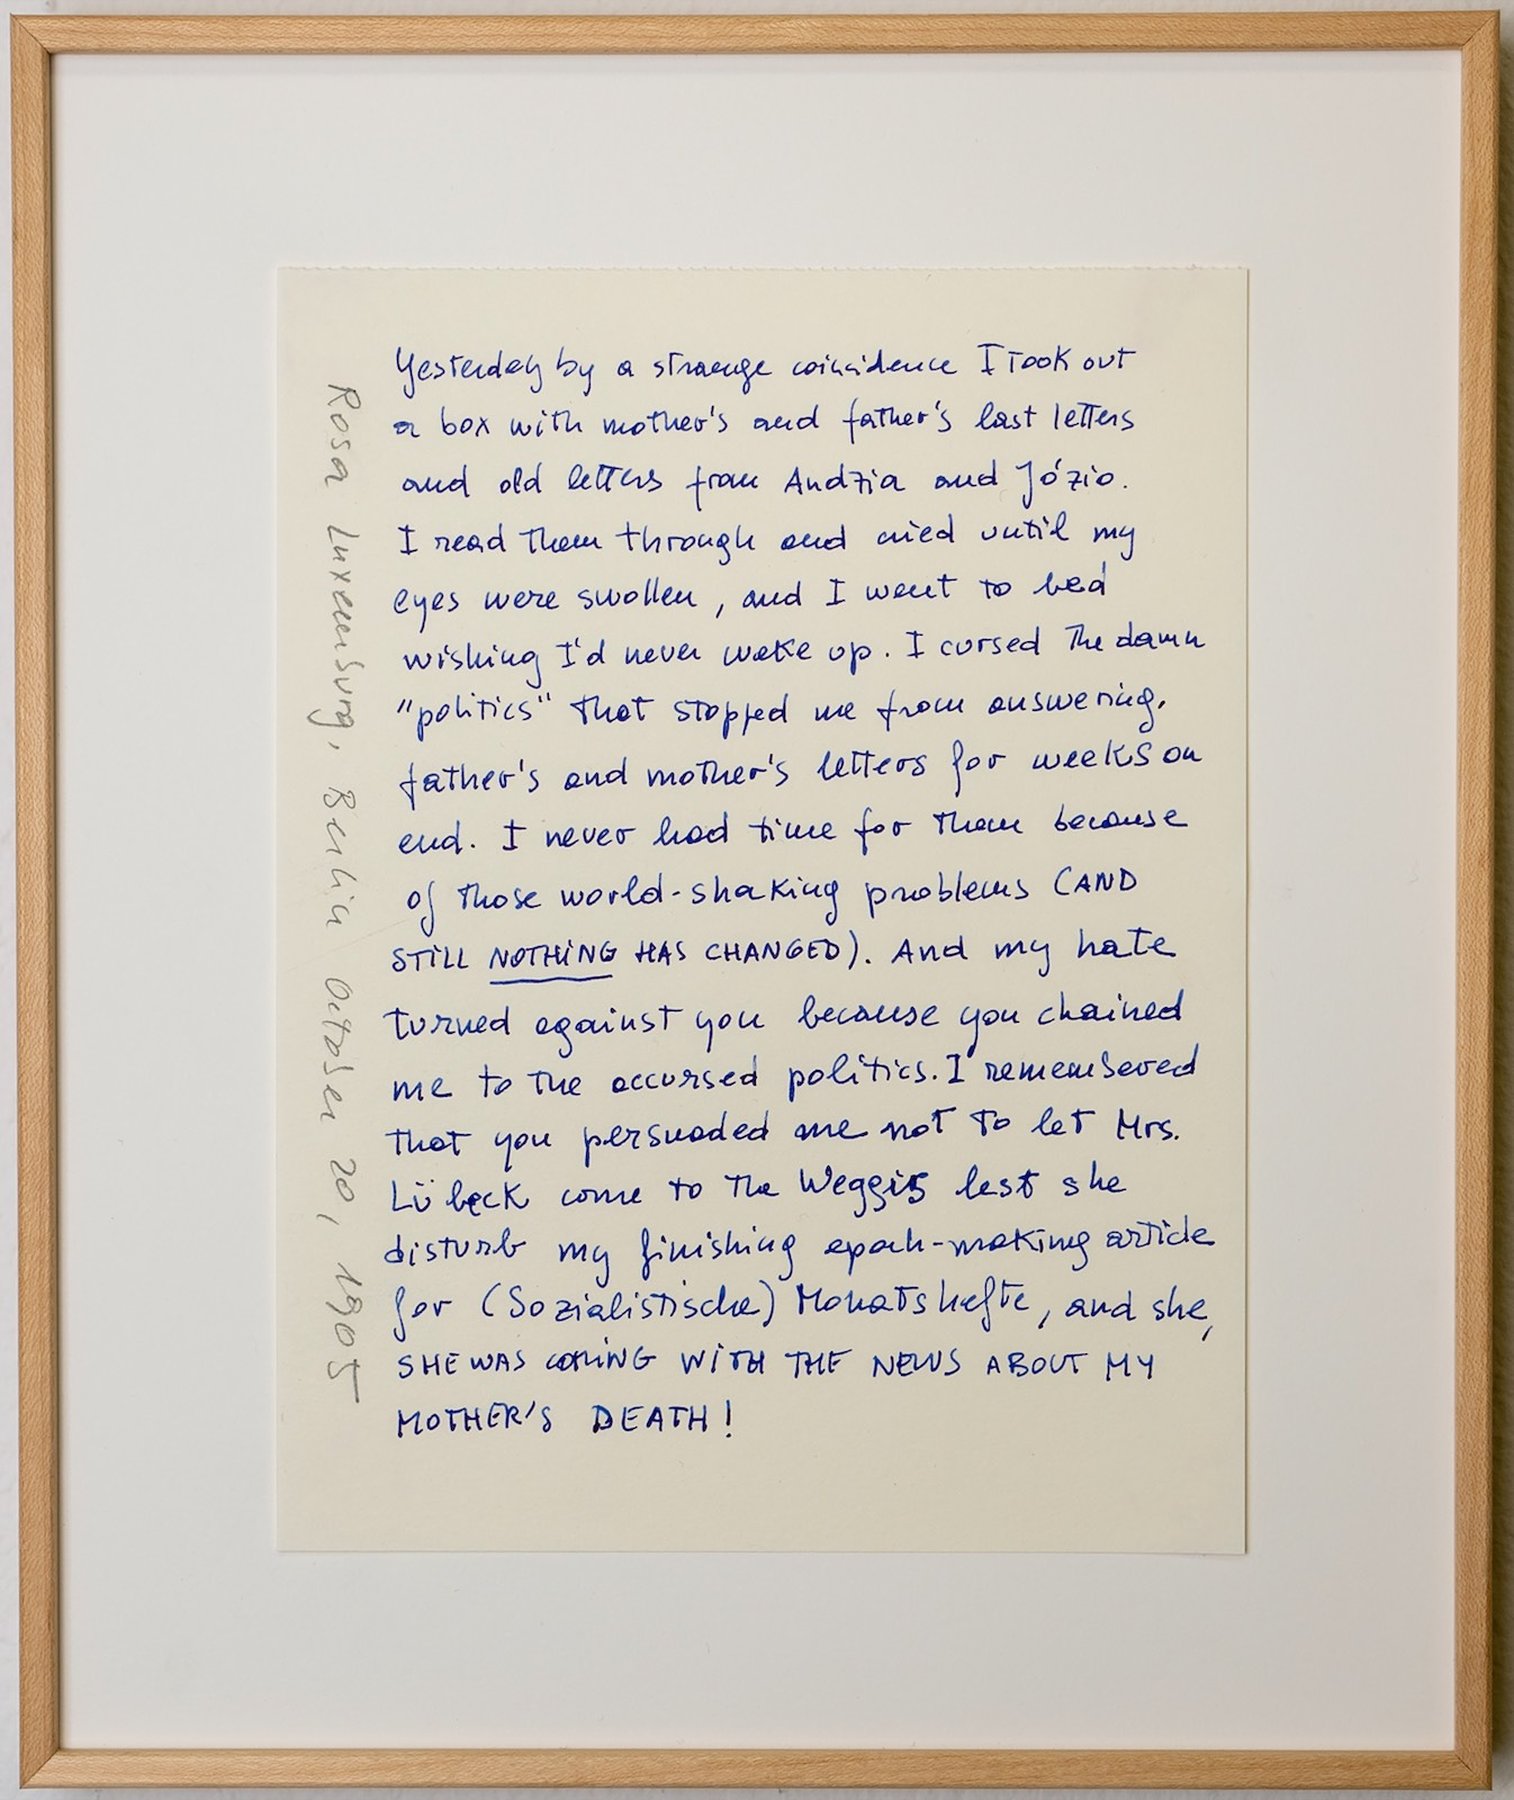 Yesterday by a strange coincidence I took out
a box with mother's and father's last letters
and old letters from Andzia and Józio.
I read them through and cried until my
eyes were swollen, and I went to bed
wishing I'd never wake up. I cursed the damn
"politics" that stopped me from answering.
father's and mother's letters for weeks on
end. I never had time for them because
of those world-shaking problems (AND
STILL NOTHING HAS CHANGED). And my hate
turned against you because you chained
me to the accursed politics. I remembered
that you persuaded me not to let Mrs.
Lübeck come to the Weggis lest she
disturb my finishing epoch-making article
for (Sozialistische) Monatshefte, and she,
SHE WAS COMING WITH THE NEWS ABOUT MY
MOTHER'S DEATH!
Rosa Luxemburg, Berlin October 20, 1905